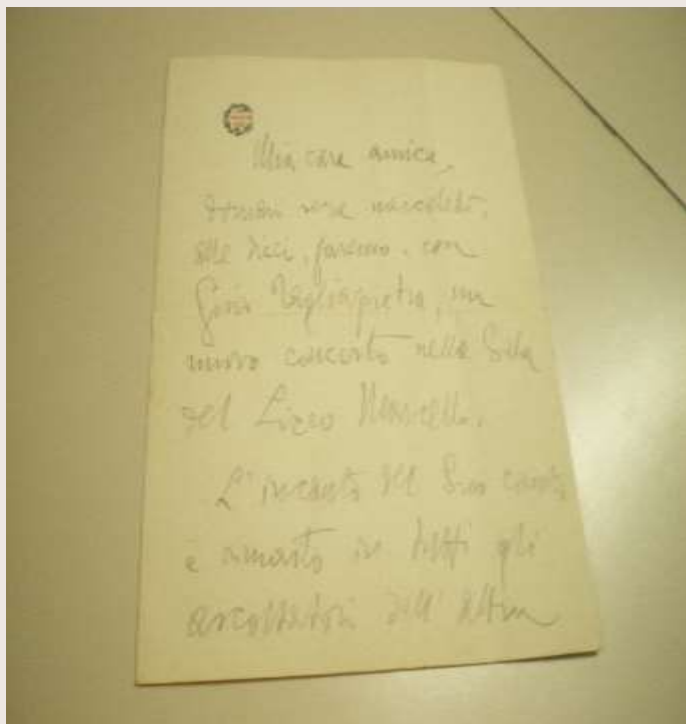 Mia cara amica,
domani sera mercoledì,
alle dieci, faremo, con
Gino Tagliapietra, un
nuovo concerto nella Sala
del Liceo Marcello.
L'incanto del Suo canto
è rimasto in tutti gli
ascoltatori dell'altra